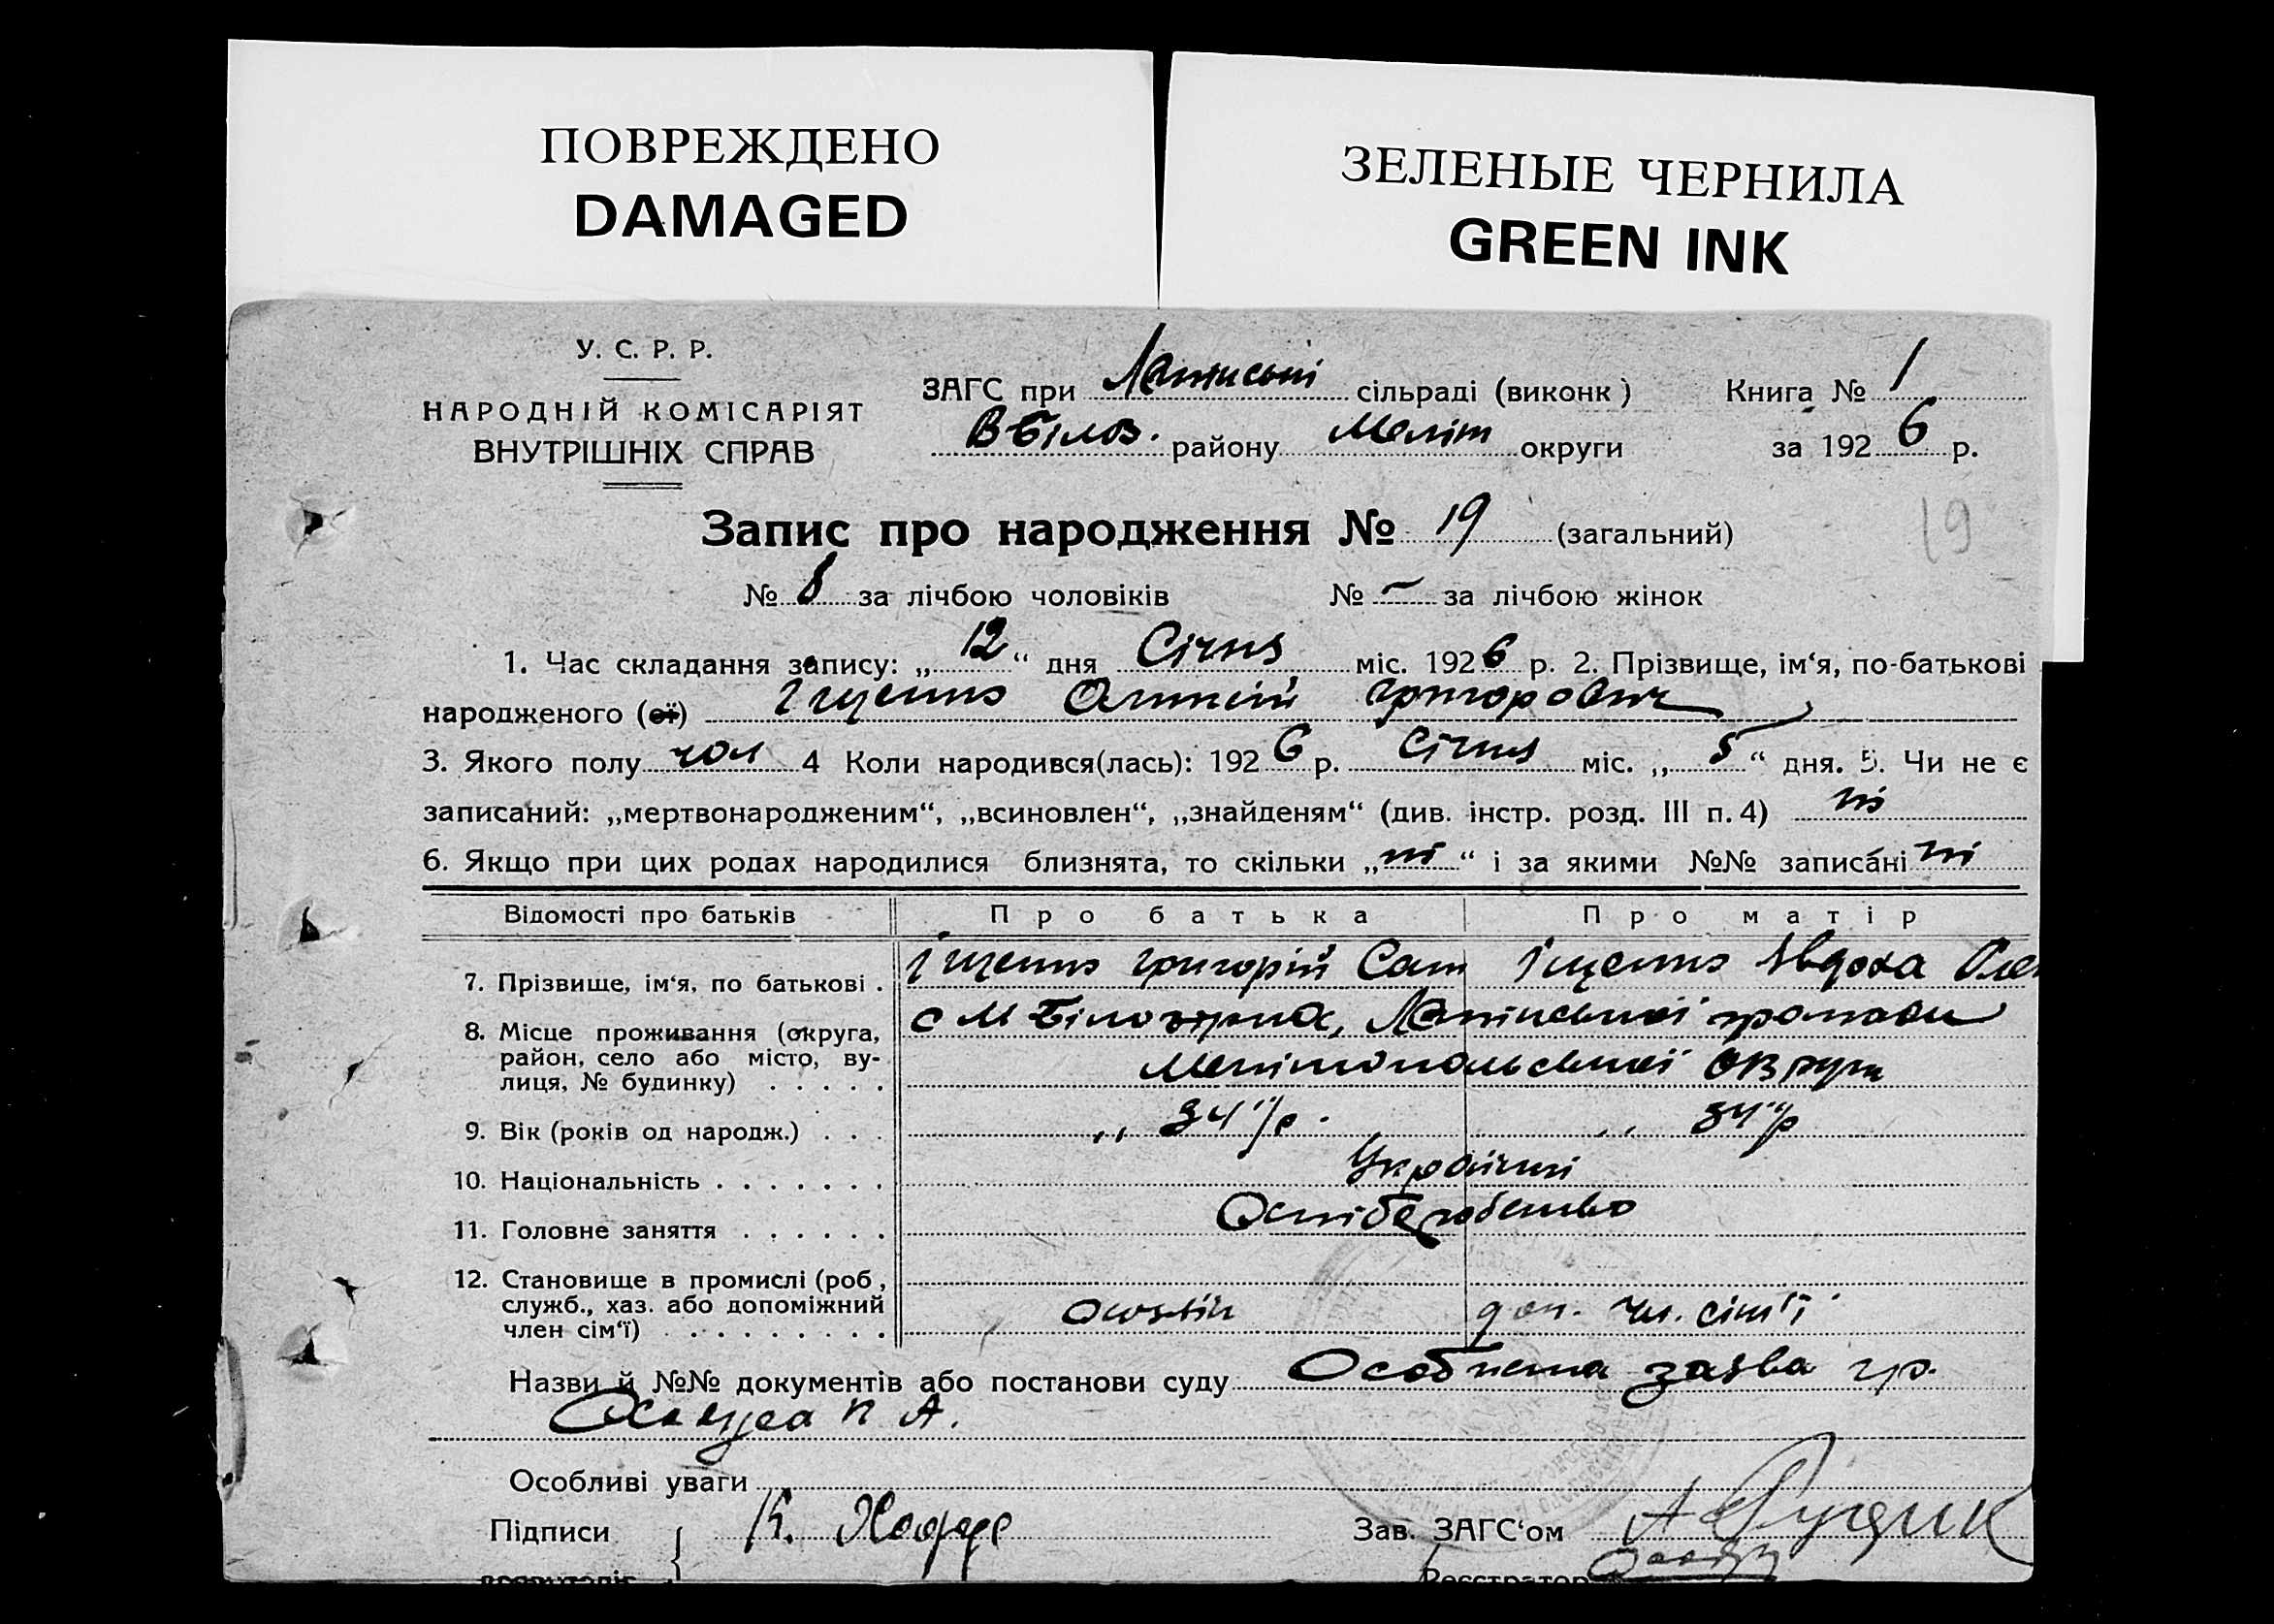 ПОВРЕЖДЕНО
DAMAGED
ЗЕЛЕНЫЕ ЧЕРНИЛА
GREEN INK
У. С. Р. Р.
НАРОДНІЙ КОМІСАРІЯТ
ВНУТРІШНІХ СПРАВ
ЗАГС при сільраді (виконк) Книга № 1
В-Білоз. району Меліт округи за 1926 р.
Запис про народження № 19 (загальний)
19
№ 8 за лічбою чоловіків № – за лічбою жінок
1. Час складання запису: „12“ дня Січня міс. 1926 р. 2. Прізвище, ім‘я, по-батькові
народженого (ої) Іщенко Григорович
3. Якого полу чол 4 Коли народився(лась): 1926 р. Січня міс. „5“ дня. 5. Чи не є
записаний: „мертвонародженим“, „всиновлен“, „знайденям“ (див. інстр. розд. III п. 4) ні
6. Якщо при цих родах народилися близнята, то скільки „ні“ і за якими №№ записані ні
Відомості про батьків Про батька Про матір
7. Прізвище, ім‘я, по батькові . Іщенко Григорій Іщенко Явдоха Оле
8. Місце проживання (округа, с М Білозірка, громади
район, село або місто, ву-
лиця, № будинку) . . . . . Мелітопольської округи
9. Вік (років од народж.) . . . „ 34 р. „ 34 р
10. Національність . . . . . . . Українці
11. Головне заняття . . . . . . Хліборобство
12. Становище в промислі (роб,
служб., хаз. або допоміжний
член сім‘ї) . . . . . . . . . доп. чл. сім'ї
Назви й №№ документів або постанови суду Особиста заява гр.
А.
Особливі уваги
Підписи К. Зав. ЗАГС‘ом А
Реєстратор